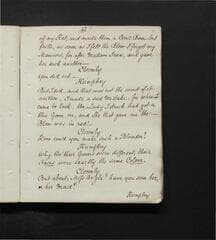 of my Hat, and made them a Civil Bow, but
faith, as soon as I felt the Blow I forgot my
Manners; for after Madam Jane, and gave
her such another—
Clumsy
You did not—
Humphry
But I did, and that was not the worst of it
neither, I made a sad Mistake; for when I
came to look, the Lady I struck had got a
Blue Gown on, and She that gave me the
Blow was in red!
Clumsy
How could you make such a Blunder?
Humphry
Why tho' their Gowns were different, their
Faces were exactly the same Colour.
Clumsy
But about Miss Angle? have you seen her,
or her Maid?
Humphry